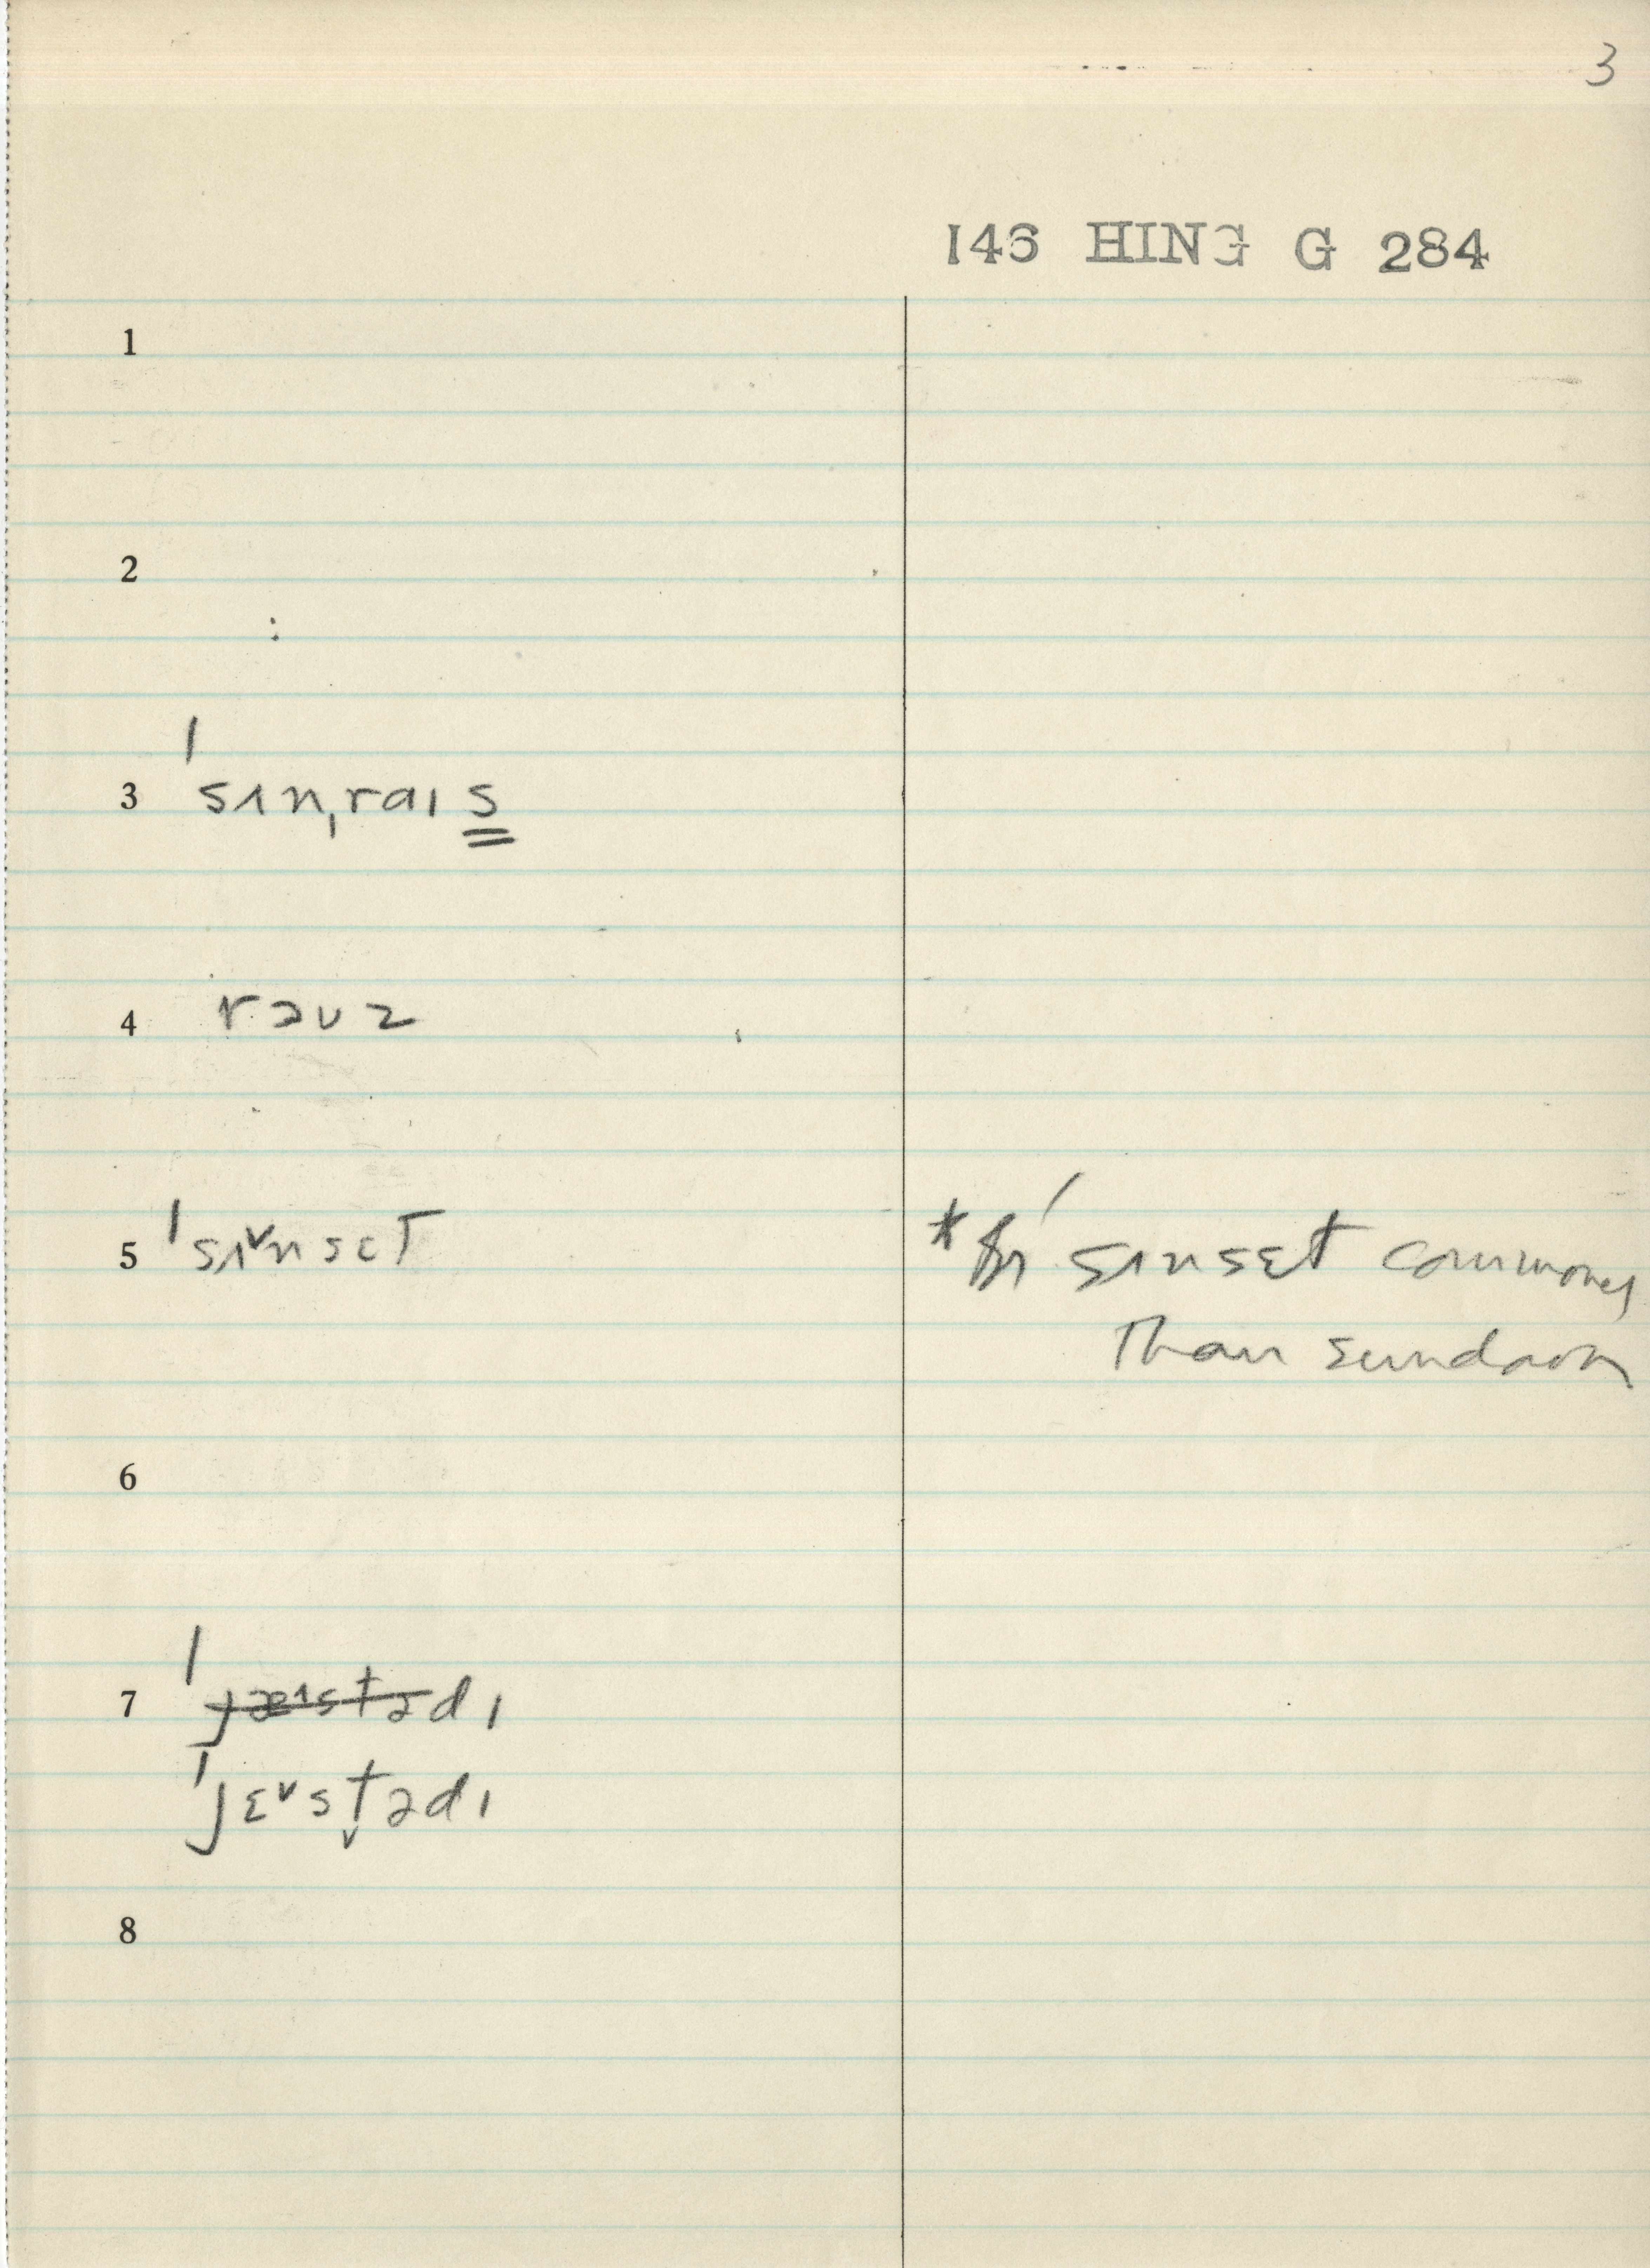 3
146 HING G 284
1
2
3 ˈsʌnˌraɪs
4 rəʊz
5 ˈsʌ˅nsɛt
* ˈsʌnsɛt commoner
than sundown
6
7 ˈjæɪstədɪ
ˈjɛ˅st̬ədɪ
8